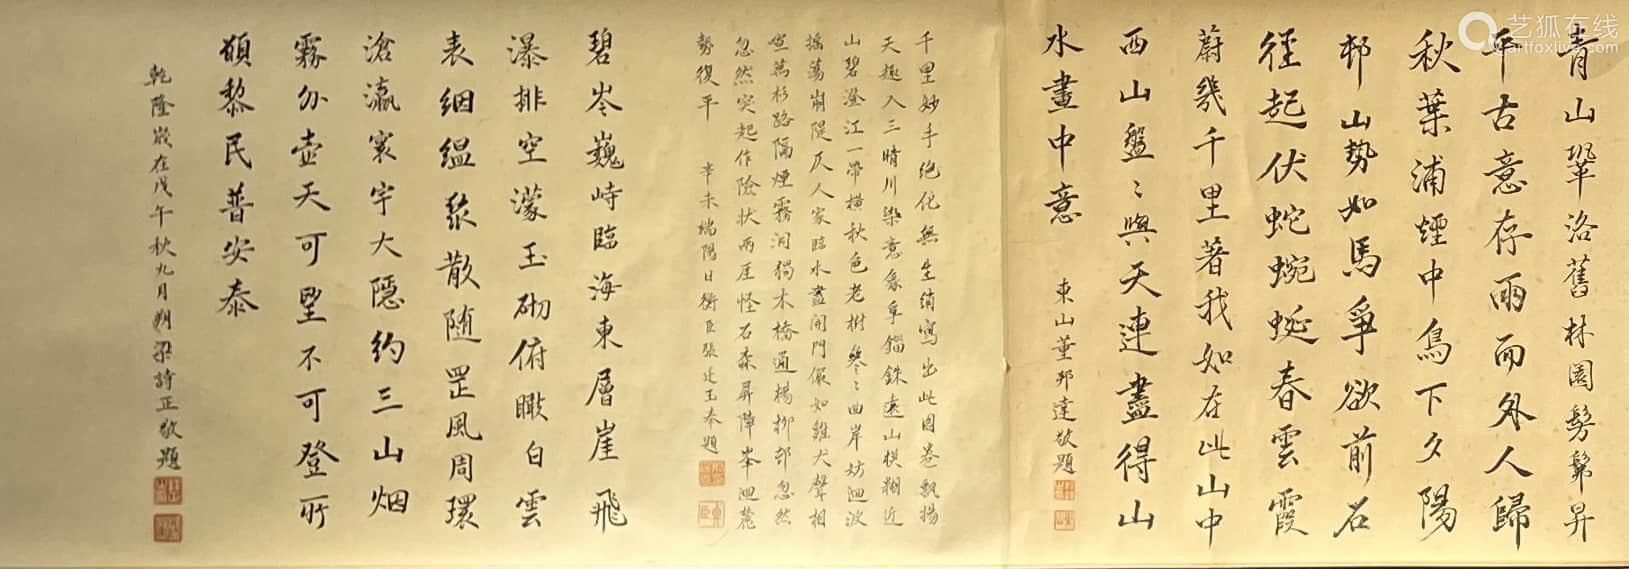 青山鞏洛舊林園髣髴昇
平古意存雨而外人歸
秋葉浦煙中鳥下夕陽
邨山勢如馬爭欲前石
徑起伏蛇蜿蜒春雲霞
蔚幾千里著我如在此山中
西山盤〻與天連盡得山
水畫中意
東山董邦達敬題
千里妙手絕化無生綃寫出此圖卷飄揚
天趣入三晴川染意象阜錙銖遠山
山碧澄江一帶橫秋色老樹參〻曲岸妨迴波
搖蕩崩隄仄人家臨水盡開門儼如雞犬聲相
喧萬杉路隔煙霧洞獨木橋通楊柳邨忽然
忽然突起作險狀兩厓怪石森屏障峯迴麓
勢復平
辛未端陽日衡臣張廷玉奉題
碧岑巍峙臨海東層崖飛
瀑排空濛玉砌俯瞰白雲
表絪縕聚散隨罡風周環
滄瀛寰宇大隱約三山烟
霧外壺天可望不可登所
願黎民普安泰
乾隆歲在戊午秋九月朔梁詩正敬題
艺狐在线
artfoxlive.com